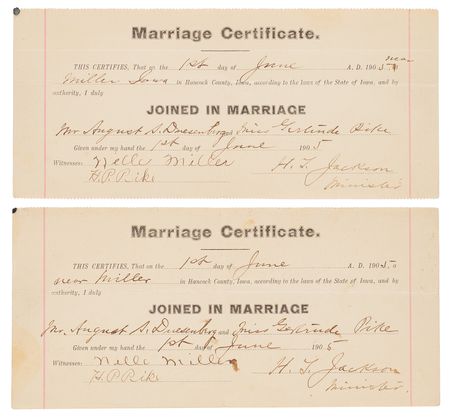 Marriage Certificate.
THIS CERTIFIES, That on the 1st day of June A. D. 1905 near
Miller Iowa in Hancock County, Iowa, according to the laws of the State of Iowa, and by
authority, I duly
JOINED IN MARRIAGE
Mr. August S. Duesenberg and Miss Gertrude Pike
Given under my hand the 1st day of June 1905
Witnesses: Nelle Miller H. T. Jackson
H. P. Pike Minister
Marriage Certificate.
THIS CERTIFIES, That on the 1st day of June A. D. 1905
near Miller in Hancock County, Iowa, according to the laws of the State of Iowa, and by
authority, I duly
JOINED IN MARRIAGE
Mr. August S. Duesenberg and Miss Gertrude Pike
Given under my hand the 1st day of June 1905
Witnesses: Nelle Miller H. T. Jackson
H. P. Pike Minister.